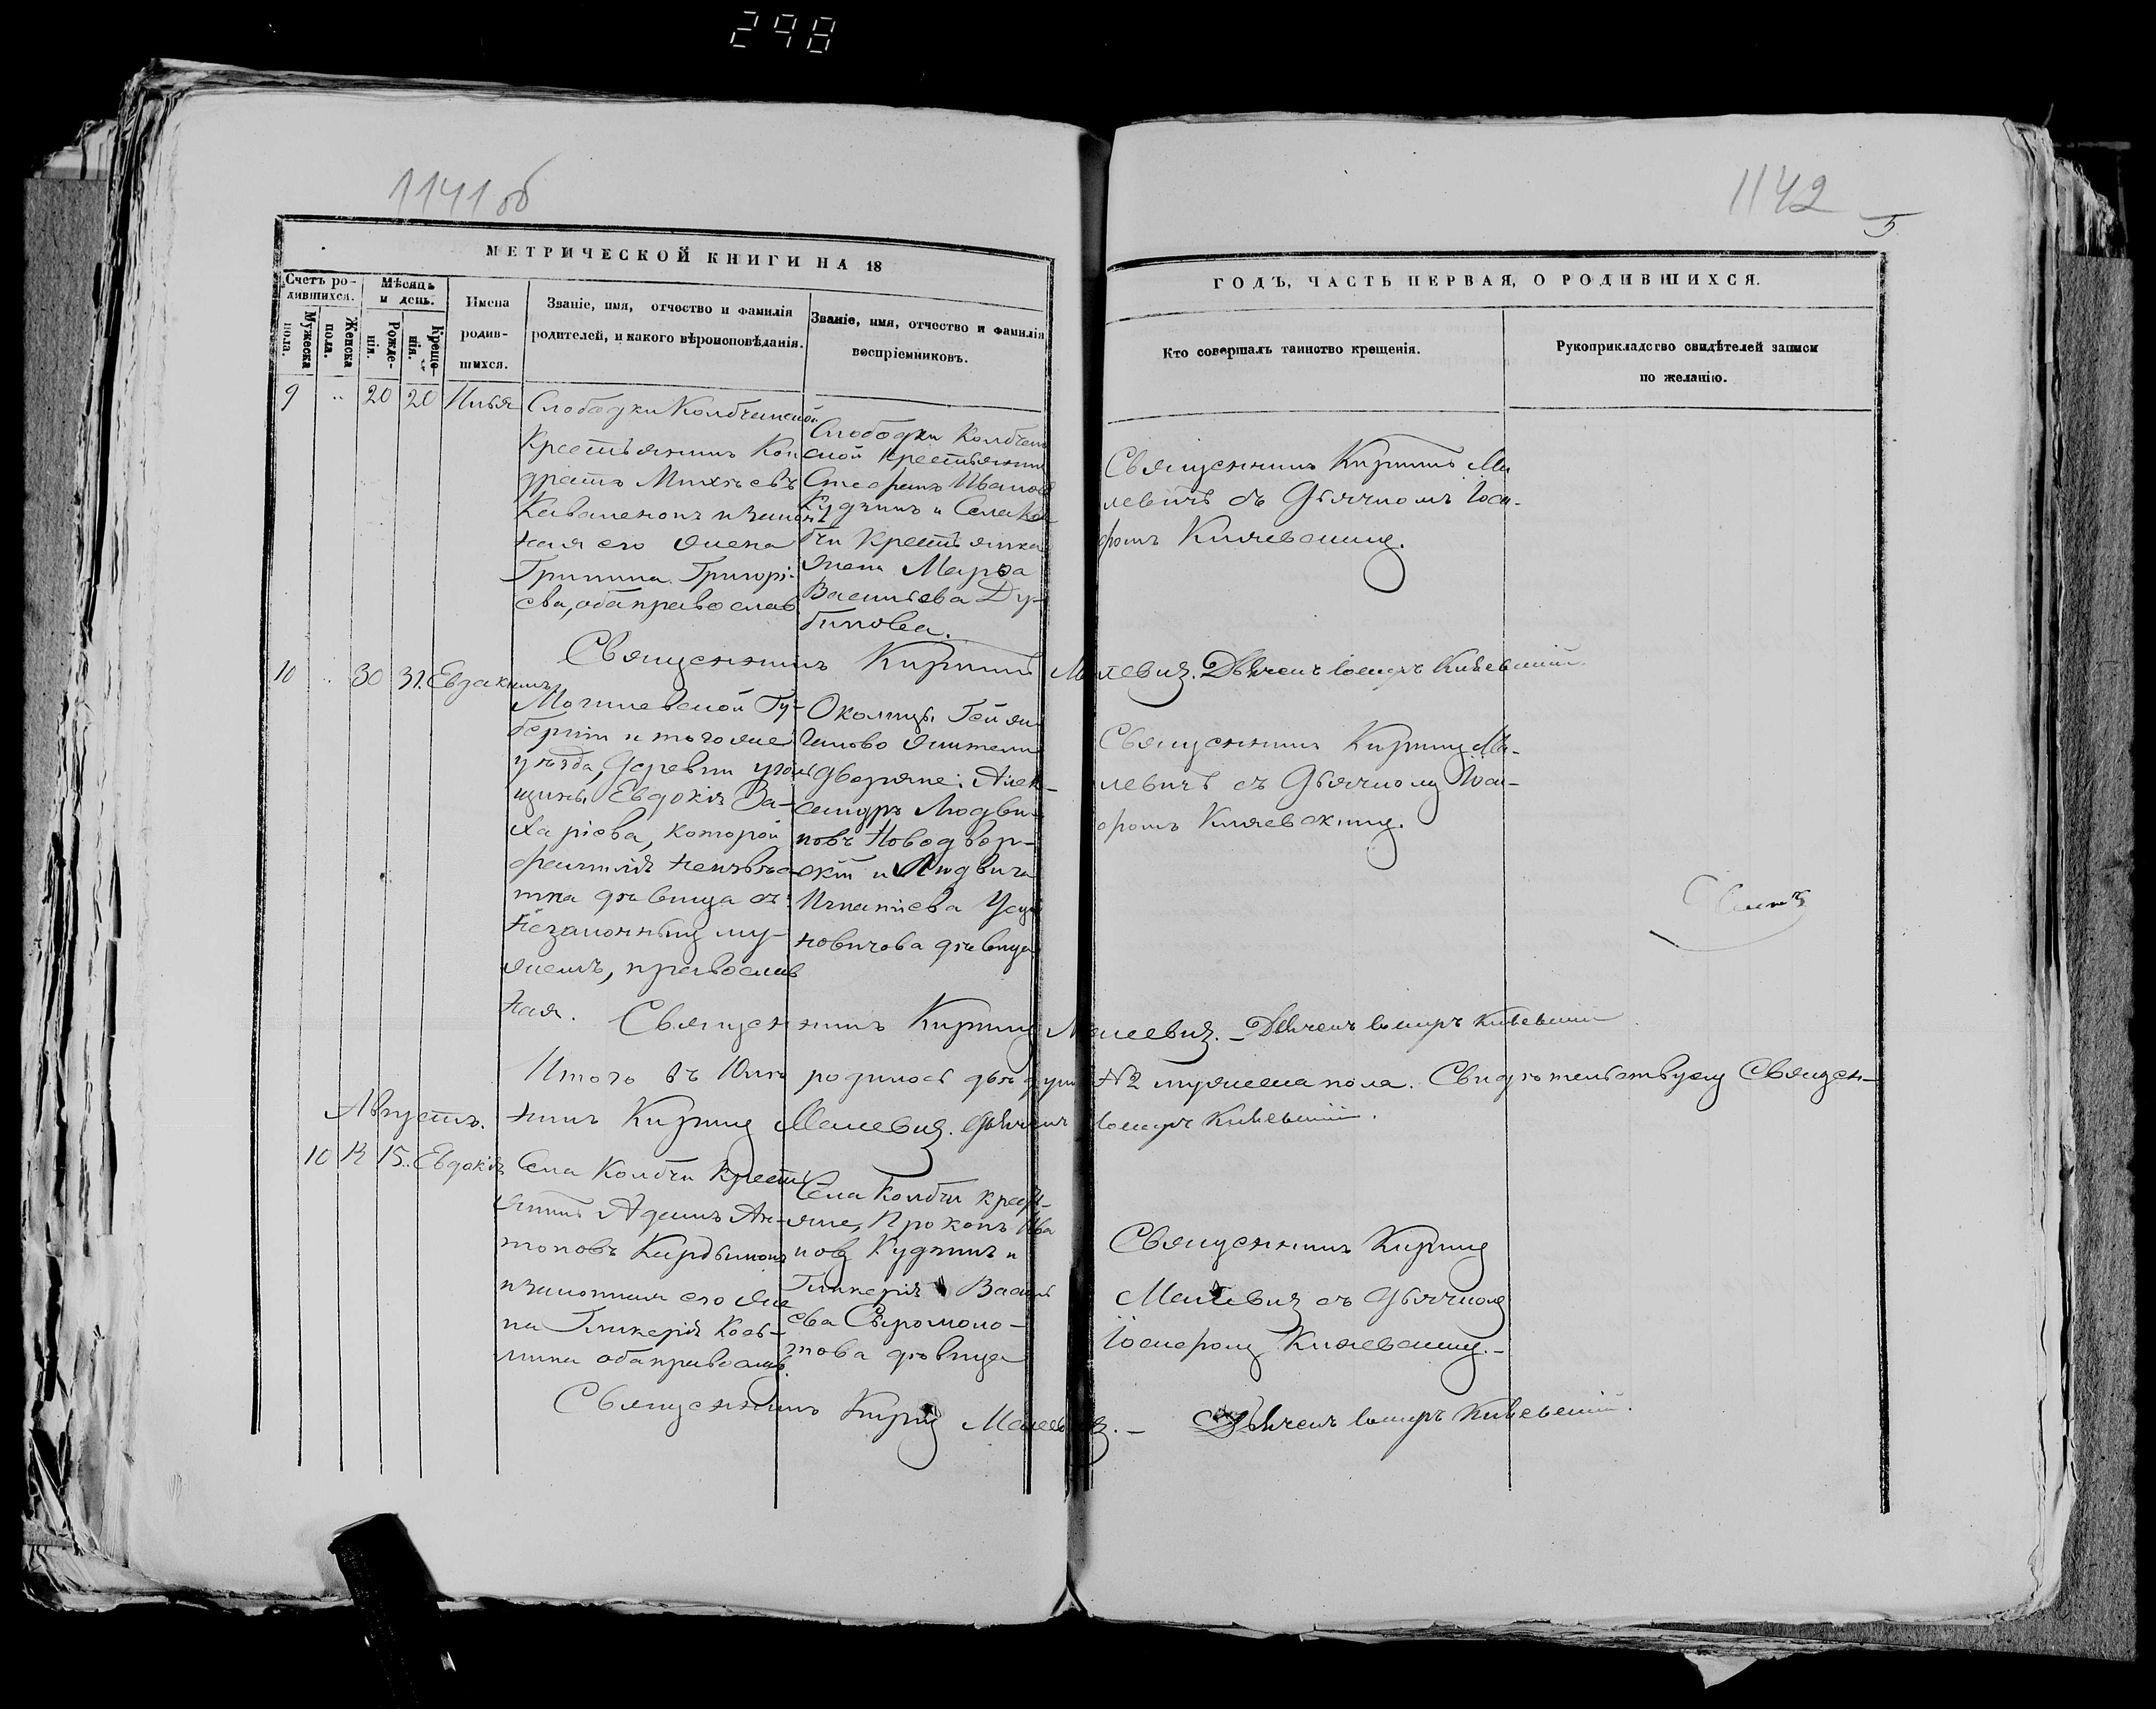 298
1141 об
1142
5
МЕТРИЧЕСКОЙ КНИГИ НА 18
ГОДЪ, ЧАСТЬ ПЕРВАЯ, О РОДИВШИХСЯ.
Счетъ ро-
дившихся.
Мужеска
пола.
Женска
пола.
Мѣсяцъ
и день.
Рожде-
нія.
Креще-
нія.
Имена
родив-
шихся.
Званіе, имя, отчество и фамилія
родителей, и какого вѣроисповѣданія.
Званіе, имя, отчество и фамилія
воспріемниковъ.
Кто совершалъ таинство крещенія.
Рукоприкладство свидѣтелей записи
по желанію.
9 .. 20 20 Илья
Слободки Колбчанской
Крестьянинъ Кон
дратъ Михѣевъ
и закон
ная его жена
Григорі-
ева, оба православ
Слободки Колбчан
ской Крестьянинъ
Иванов
Кудзинъ и Села Кол
бчи Крестьянка
жена Марѳа
Васильева Ду-
бинова.
Священникъ Кириллъ Ма
левичъ съ Дьячкомъ Іоси-
фомъ Княжевскимъ.
Священникъ Кириллъ Малевичъ. Дьячекъ Іосифъ
10 .. 30 31. Евдакимъ
Могилевской Гу-
берніи и тогоже
уѣзда, Деревни
Евдокія За-
харіева, которой
фамилія неизвѣс-
тна дѣвица съ
незаконнымъ му-
жемъ, православ
ная.
Околицы
жители
дворяне: Алек-
сандръ Людви-
ковъ Новодвор-
скій и Людвига
Игнатіева
дѣвица
Священникъ Кириллъ Ма-
левичъ съ Дьячкомъ Іоси-
фомъ Княжевскимъ.
Священникъ Кириллъ Малевичъ. – Дьячекъ Іосифъ
Итого въ Юлѣ родилось двѣ души № 2 мужеска пола. Свидѣтельствуемъ Священ-
никъ Кириллъ Малевичъ. Дьячекъ Іосифъ
Августъ.
10 14 15. Евдокія
Села Колбчи Кресть
янинъ Адамъ Ан-
тоновъ
и законная его же
на Гликерія Козь-
мина оба православ.
Села Колбчи крест-
яне, Прокопъ Ива
новъ Кудзинъ и
Гликерія Василь
ева Сыромоло-
това дѣвица
Священникъ Кириллъ
Малевичъ съ Дьячкомъ
Іосифомъ Княжевскимъ. –
Священникъ Кириллъ Малевичъ. – Дьячекъ Іосифъ